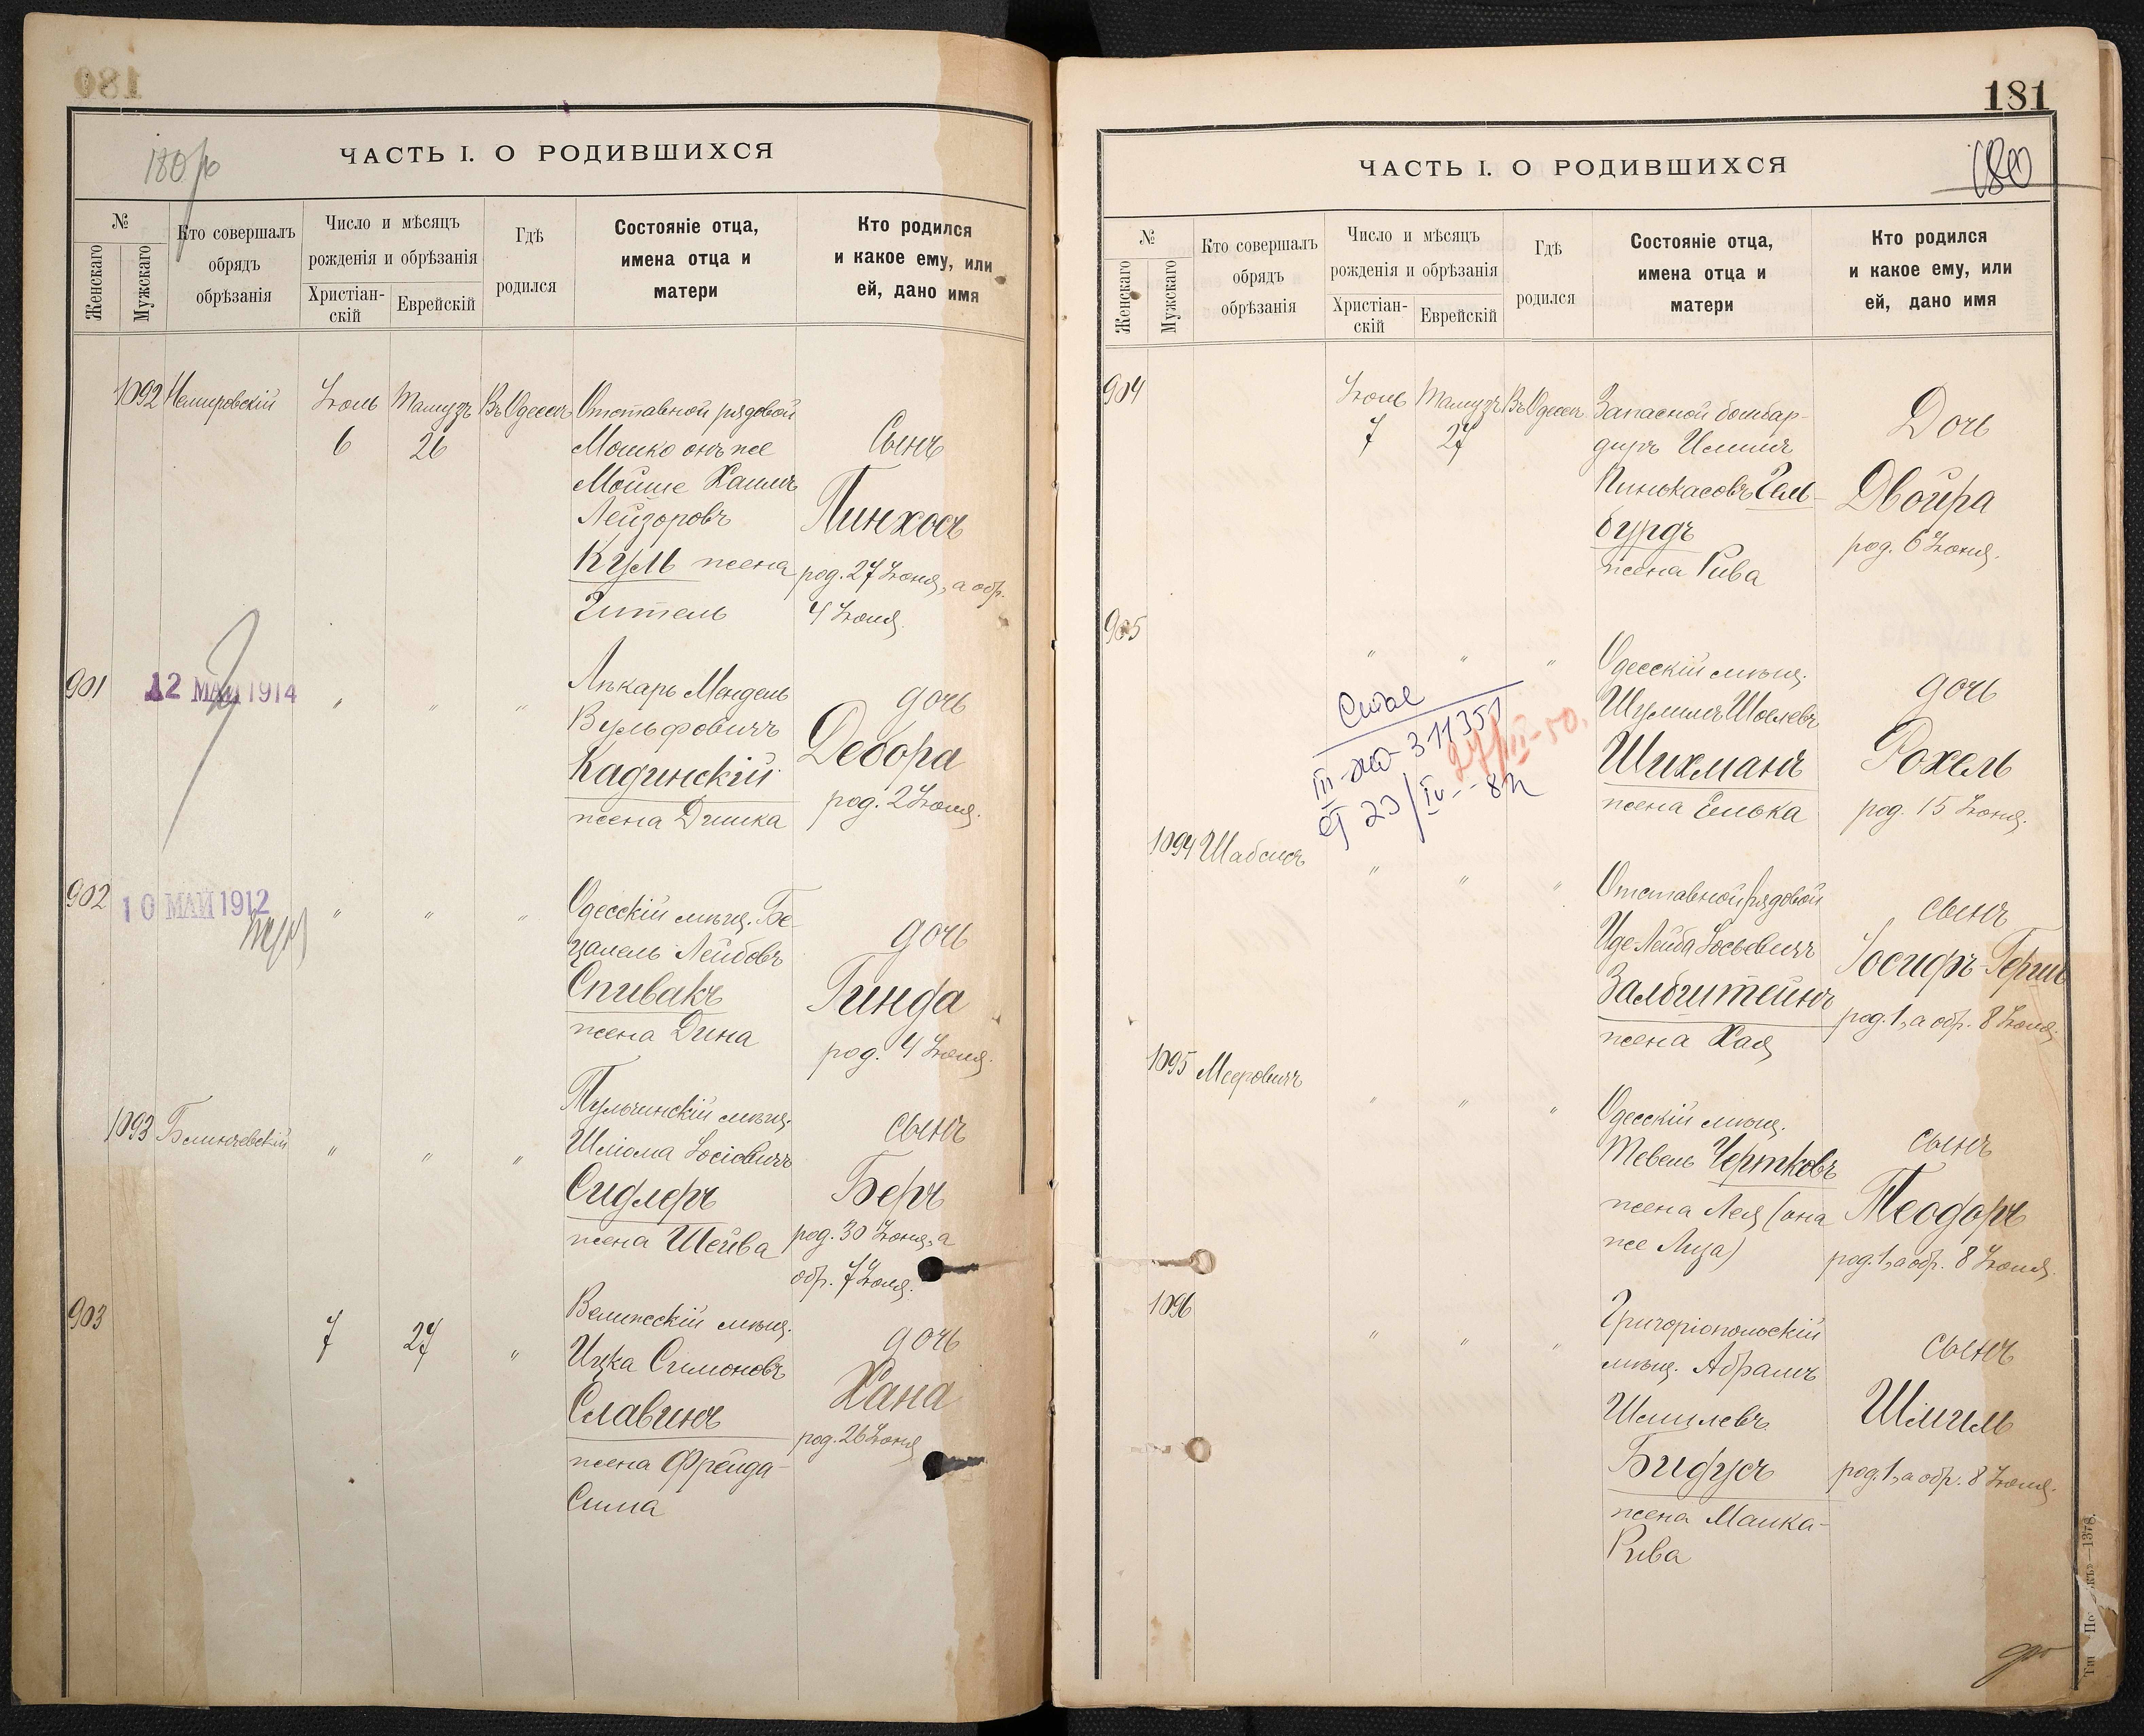 180
180 об
ЧАСТЬ I. О РОДИВШИХСЯ
№
Женскаго
Мужскаго
Кто совершалъ
обрядъ
обрѣзанія
Число и мѣсяцъ
рожденія и обрѣзанія
Христіан-
скій
Еврейскій
Гдѣ
родился
Состояніе отца,
имена отца и
матери
Кто родился
и какое ему, или
ей, дано имя
1092 Немировскій Іюль Тамузъ Въ Одессѣ Отставной рядовой
6 26 Мошко онъ же Сынъ
Мойше Хаимъ
Лейзоровъ Пинхосъ
Куль жена род. 27 Іюня, а обр.
Гитель 4 Іюля.
901 12 МАЙ 1914 " " " Лѣкарь Мендель дочь
Вульфовичъ Дебора
Кадинскій
жена Дишка род. 2 Іюля.
902 10 МАЙ 1912 " " " Одесскій мѣщ. Бе-
цалель Лейбовъ дочь
Спивакъ Гинда
жена Дина род. 4 Іюля.
1093 Блинчевскій " " " Тульчинскій мѣщ. сынъ
Шліома Іосіовичъ
Сидлеръ Беръ
жена Шейва род. 30 Іюня, а
обр. 7 Іюля.
903 7 27 " Велижскій мѣщ. дочь
Ицка Симоновъ Хана
Славинъ род. 26 Іюня
жена Фрейда-
Сима
181
180
ЧАСТЬ I. О РОДИВШИХСЯ
№
Женскаго
Мужскаго
Кто совершалъ
обрядъ
обрѣзанія
Число и мѣсяцъ
рожденія и обрѣзанія
Христіан-
скій
Еврейскій
Гдѣ
родился
Состояніе отца,
имена отца и
матери
Кто родился
и какое ему, или
ей, дано имя
904 Іюль Тамузъ Въ Одессѣ Запасной бомбар- Дочь
7 27 диръ
Пинькасовъ Гель- Двойра
бурдъ род. 6 Іюня.
жена Рива
905 " " " Одесскій мѣщ. дочь
Шулимъ Шоелевъ
Шихманъ Рохель
жена Елька род. 15 Іюня.
III-ЖО 311351
27/III-50.
23/IV
1094 Шабсисъ " " " Отставной рядовой сынъ
Иде Лейба Іосьевичъ Іосифъ-Герш
Залбштейнъ род. 1, а обр. 8 Іюля.
жена Хая
1095 Мееровичъ " " " Одесскій мѣщ. сынъ
Тевель Чертковъ
жена Лея (она Теодоръ
же Лиза) род. 1, а обр. 8 Іюля.
1096 " " " Григоріопольскій сынъ
мѣщ. Абрамъ
Шмилевъ Шмиль
Бидусъ род. 1, а обр. 8 Іюля.
жена Малка-
Рива
—1378.